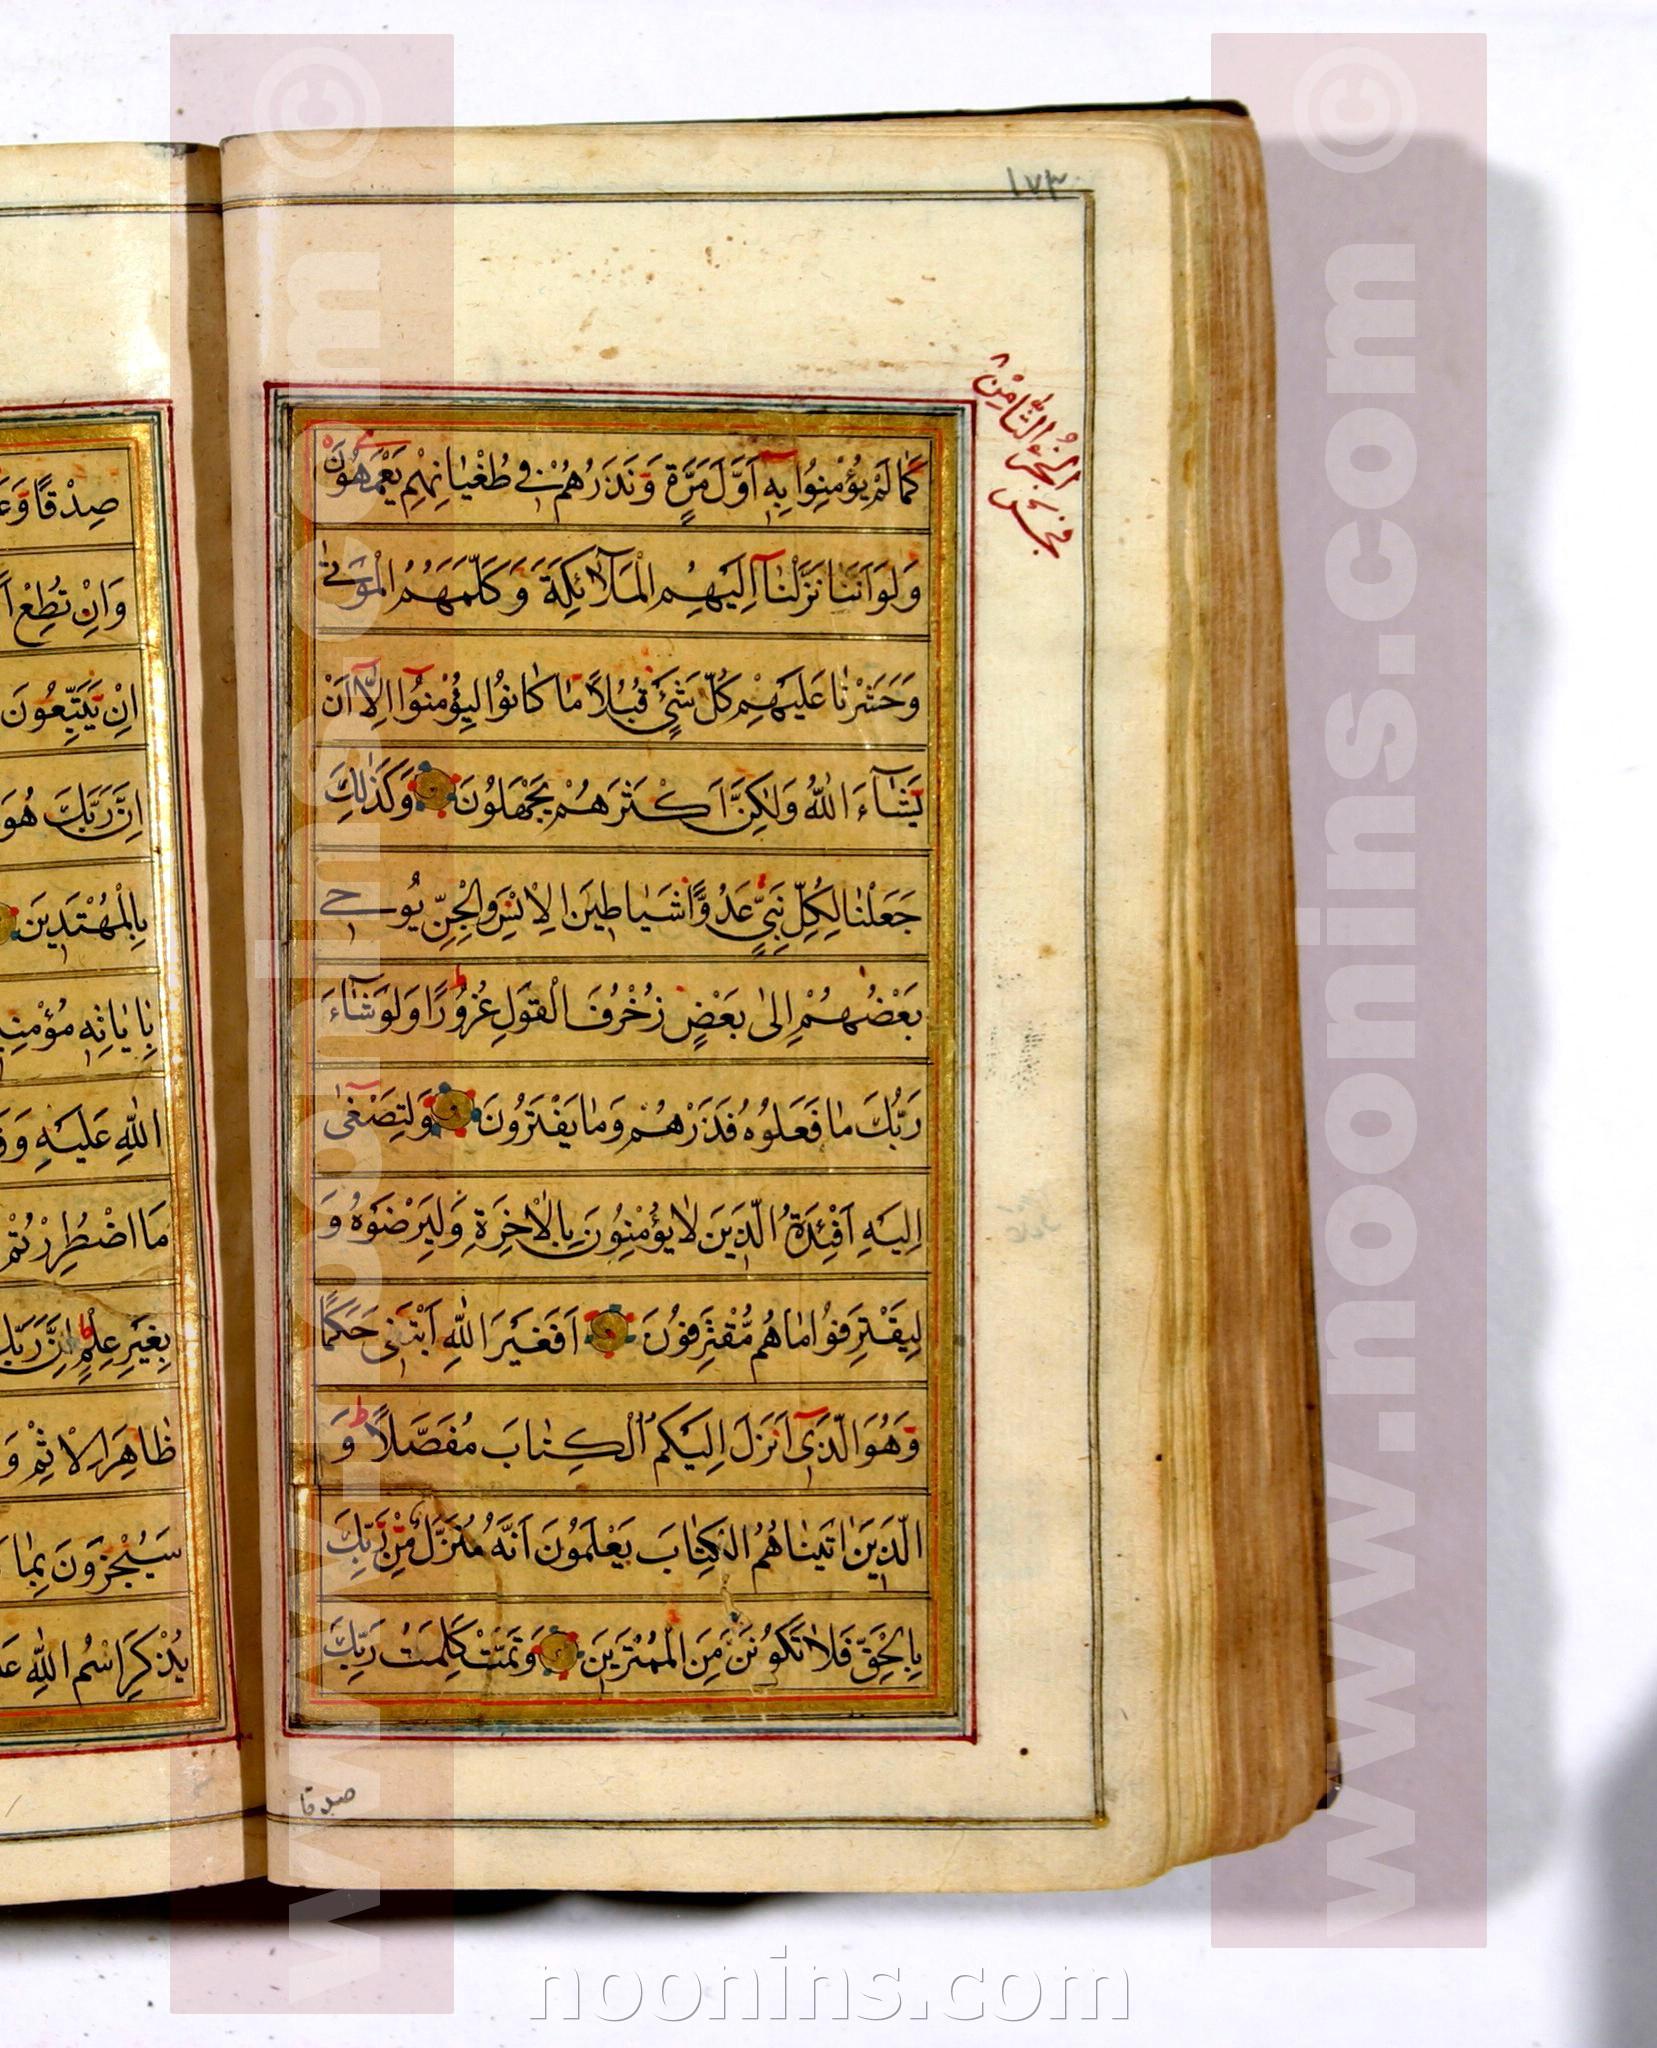 ١٧٣
الجزء الثامن ٨
كَمَا لَمْ يُؤْمِنُوا بِهِ اَوَّلَ مَرَّةٍ وَنَذَرُهُمْ فِي طُغْيَانِهِمْ يَعْمَهُونَ
وَلَوْ اَنَّنَا نَزَّلْنَآ اِلَيْهِمُ الْمَلَآئِكَةَ وَكَلَّمَهُمُ الْمَوْتٰى
وَحَشَرْنَا عَلَيْهِمْ كُلَّ شَيْءٍ قُبُلًا مَا كَانُوا لِيُؤْمِنُوٓا اِلَّآ اَنْ
يَشَآءَ اللّٰهُ وَلٰكِنَّ اَكْثَرَهُمْ يَجْهَلُونَ وَكَذٰلِكَ
جَعَلْنَا لِكُلِّ نَبِيٍّ عَدُوًّا شَيَاطِينَ الْاِنْسِ وَالْجِنِّ يُوحِي
بَعْضُهُمْ اِلٰى بَعْضٍ زُخْرُفَ الْقَوْلِ غُرُورًا وَلَوْ شَآءَ
رَبُّكَ مَا فَعَلُوهُ فَذَرْهُمْ وَمَا يَفْتَرُونَ وَلِتَصْغٰٓى
اِلَيْهِ اَفْئِدَةُ الَّذِينَ لَا يُؤْمِنُونَ بِالْاٰخِرَةِ وَلِيَرْضَوْهُ وَ
لِيَقْتَرِفُوا مَا هُمْ مُقْتَرِفُونَ اَفَغَيْرَ اللّٰهِ اَبْتَغِي حَكَمًا
وَهُوَ الَّذِيٓ اَنْزَلَ اِلَيْكُمُ الْكِتَابَ مُفَصَّلًا وَ
الَّذِينَ اٰتَيْنَاهُمُ الْكِتَابَ يَعْلَمُونَ اَنَّهُ مُنَزَّلٌ مِنْ رَبِّكَ
بِالْحَقِّ فَلَا تَكُونَنَّ مِنَ الْمُمْتَرِينَ وَتَمَّتْ كَلِمَتُ رَبِّكَ
صدقا
صِدْقًا وَعَ
وَاِنْ تُطِعْ اَ
اِنْ يَتَّبِعُونَ
اِنَّ رَبَّكَ هُوَ
بِالْمُهْتَدِينَ
بِاٰيَاتِهِ مُؤْمِنِي
اللّٰهِ عَلَيْهِ وَقَ
مَا اضْطُرِرْتُمْ
بِغَيْرِ عِلْمٍ اِنَّ رَبَّكَ
ظَاهِرَ الْاِثْمِ وَ
سَيُجْزَوْنَ بِمَا
يُذْكَرِ اسْمُ اللّٰهِ عَلَ
www.noonins.com ©
www.noonins.com ©
noonins.com